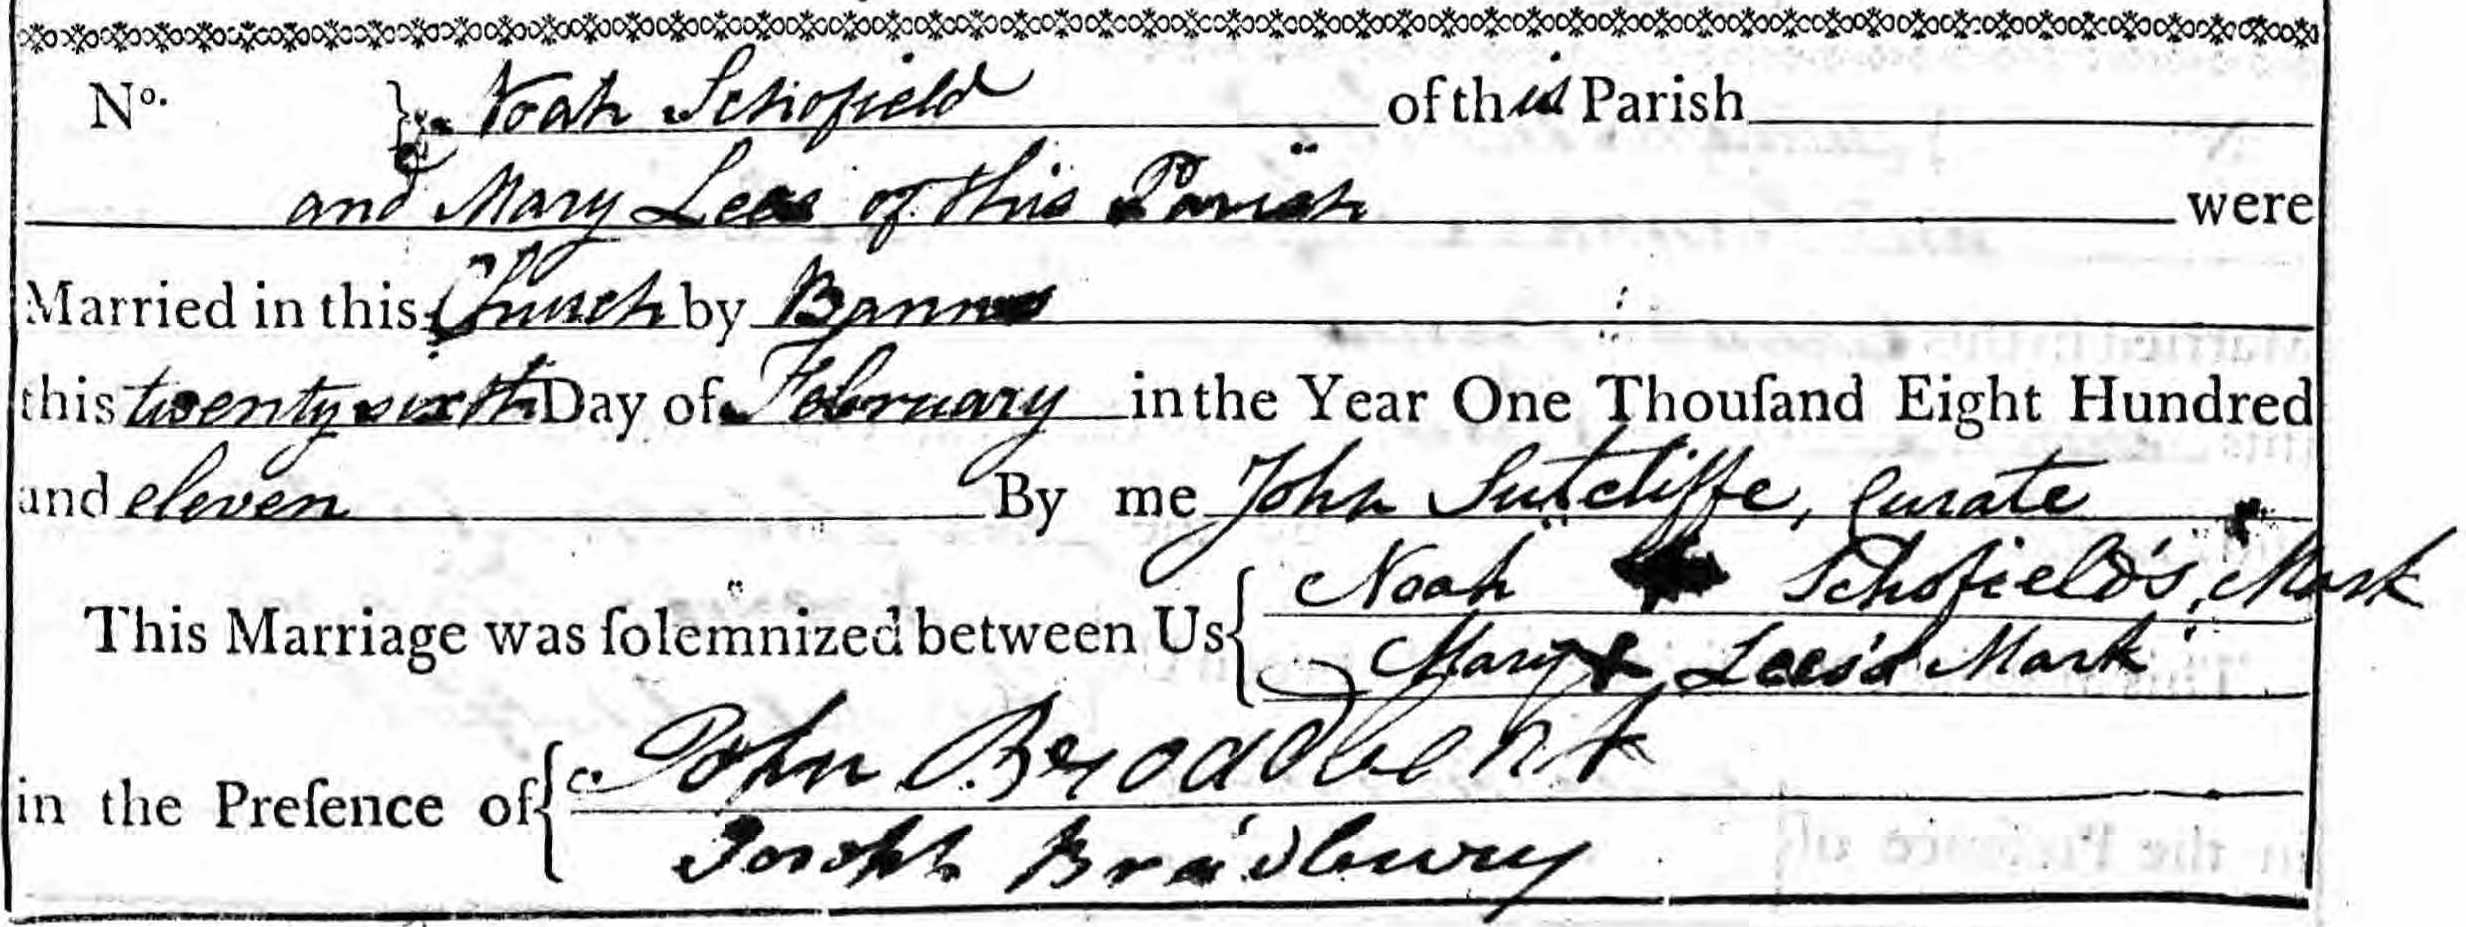 No. } Noah Schofield of this Parish
and Mary Lees of this Parish were
Married in this Church by Banns
this twenty sixth Day of February in the Year One Thouſand Eight Hundred
and eleven By me John Sutcliffe, Curate
This Marriage was ſolemnized between Us { Noah + Schofield's Mark
Mary + Lees's Mark
in the Preſence of { John Broadbent
Joseph Bradbury